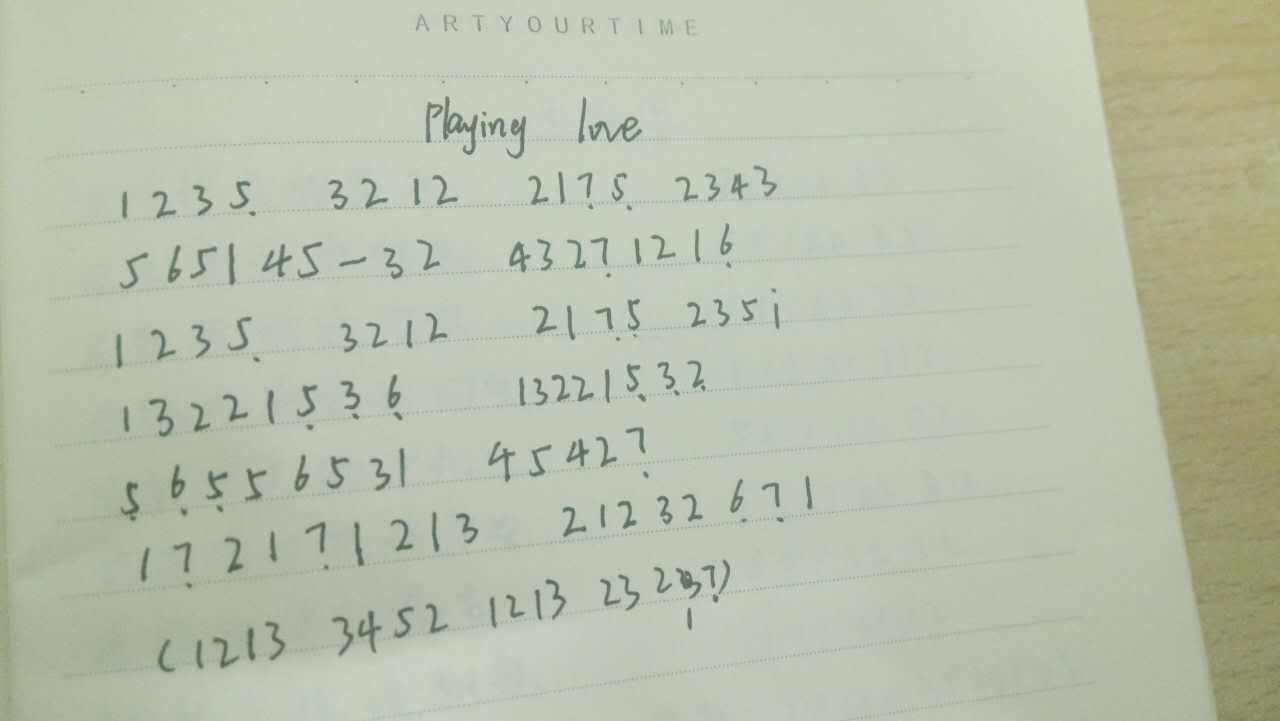 ARTYOURTIME
Playing love
1 2 3 5̣ 3 2 1 2 2 1 7̣ 5̣ 2 3 4 3
5 6 5 1 4 5 - 3 2 4 3 2 7̣ 1 2 1 6̣
1 2 3 5̣ 3 2 1 2 2 1 7̣ 5̣ 2 3 5 i
1 3 2 2 1 5̣ 3̣ 6̣ 1 3 2 2 1 5̣ 3̣ 2̣
5̣ 6̣ 5̣ 5 6 5 3 1 4 5 4 2 7̣
1 7̣ 2 1 7̣ 1 2 1 3 2 1 2 3 2 6̣ 7̣ 1
( 1 2 1 3 3 4 5 2 1 2 1 3 2 3 2 3 7̣ )
1